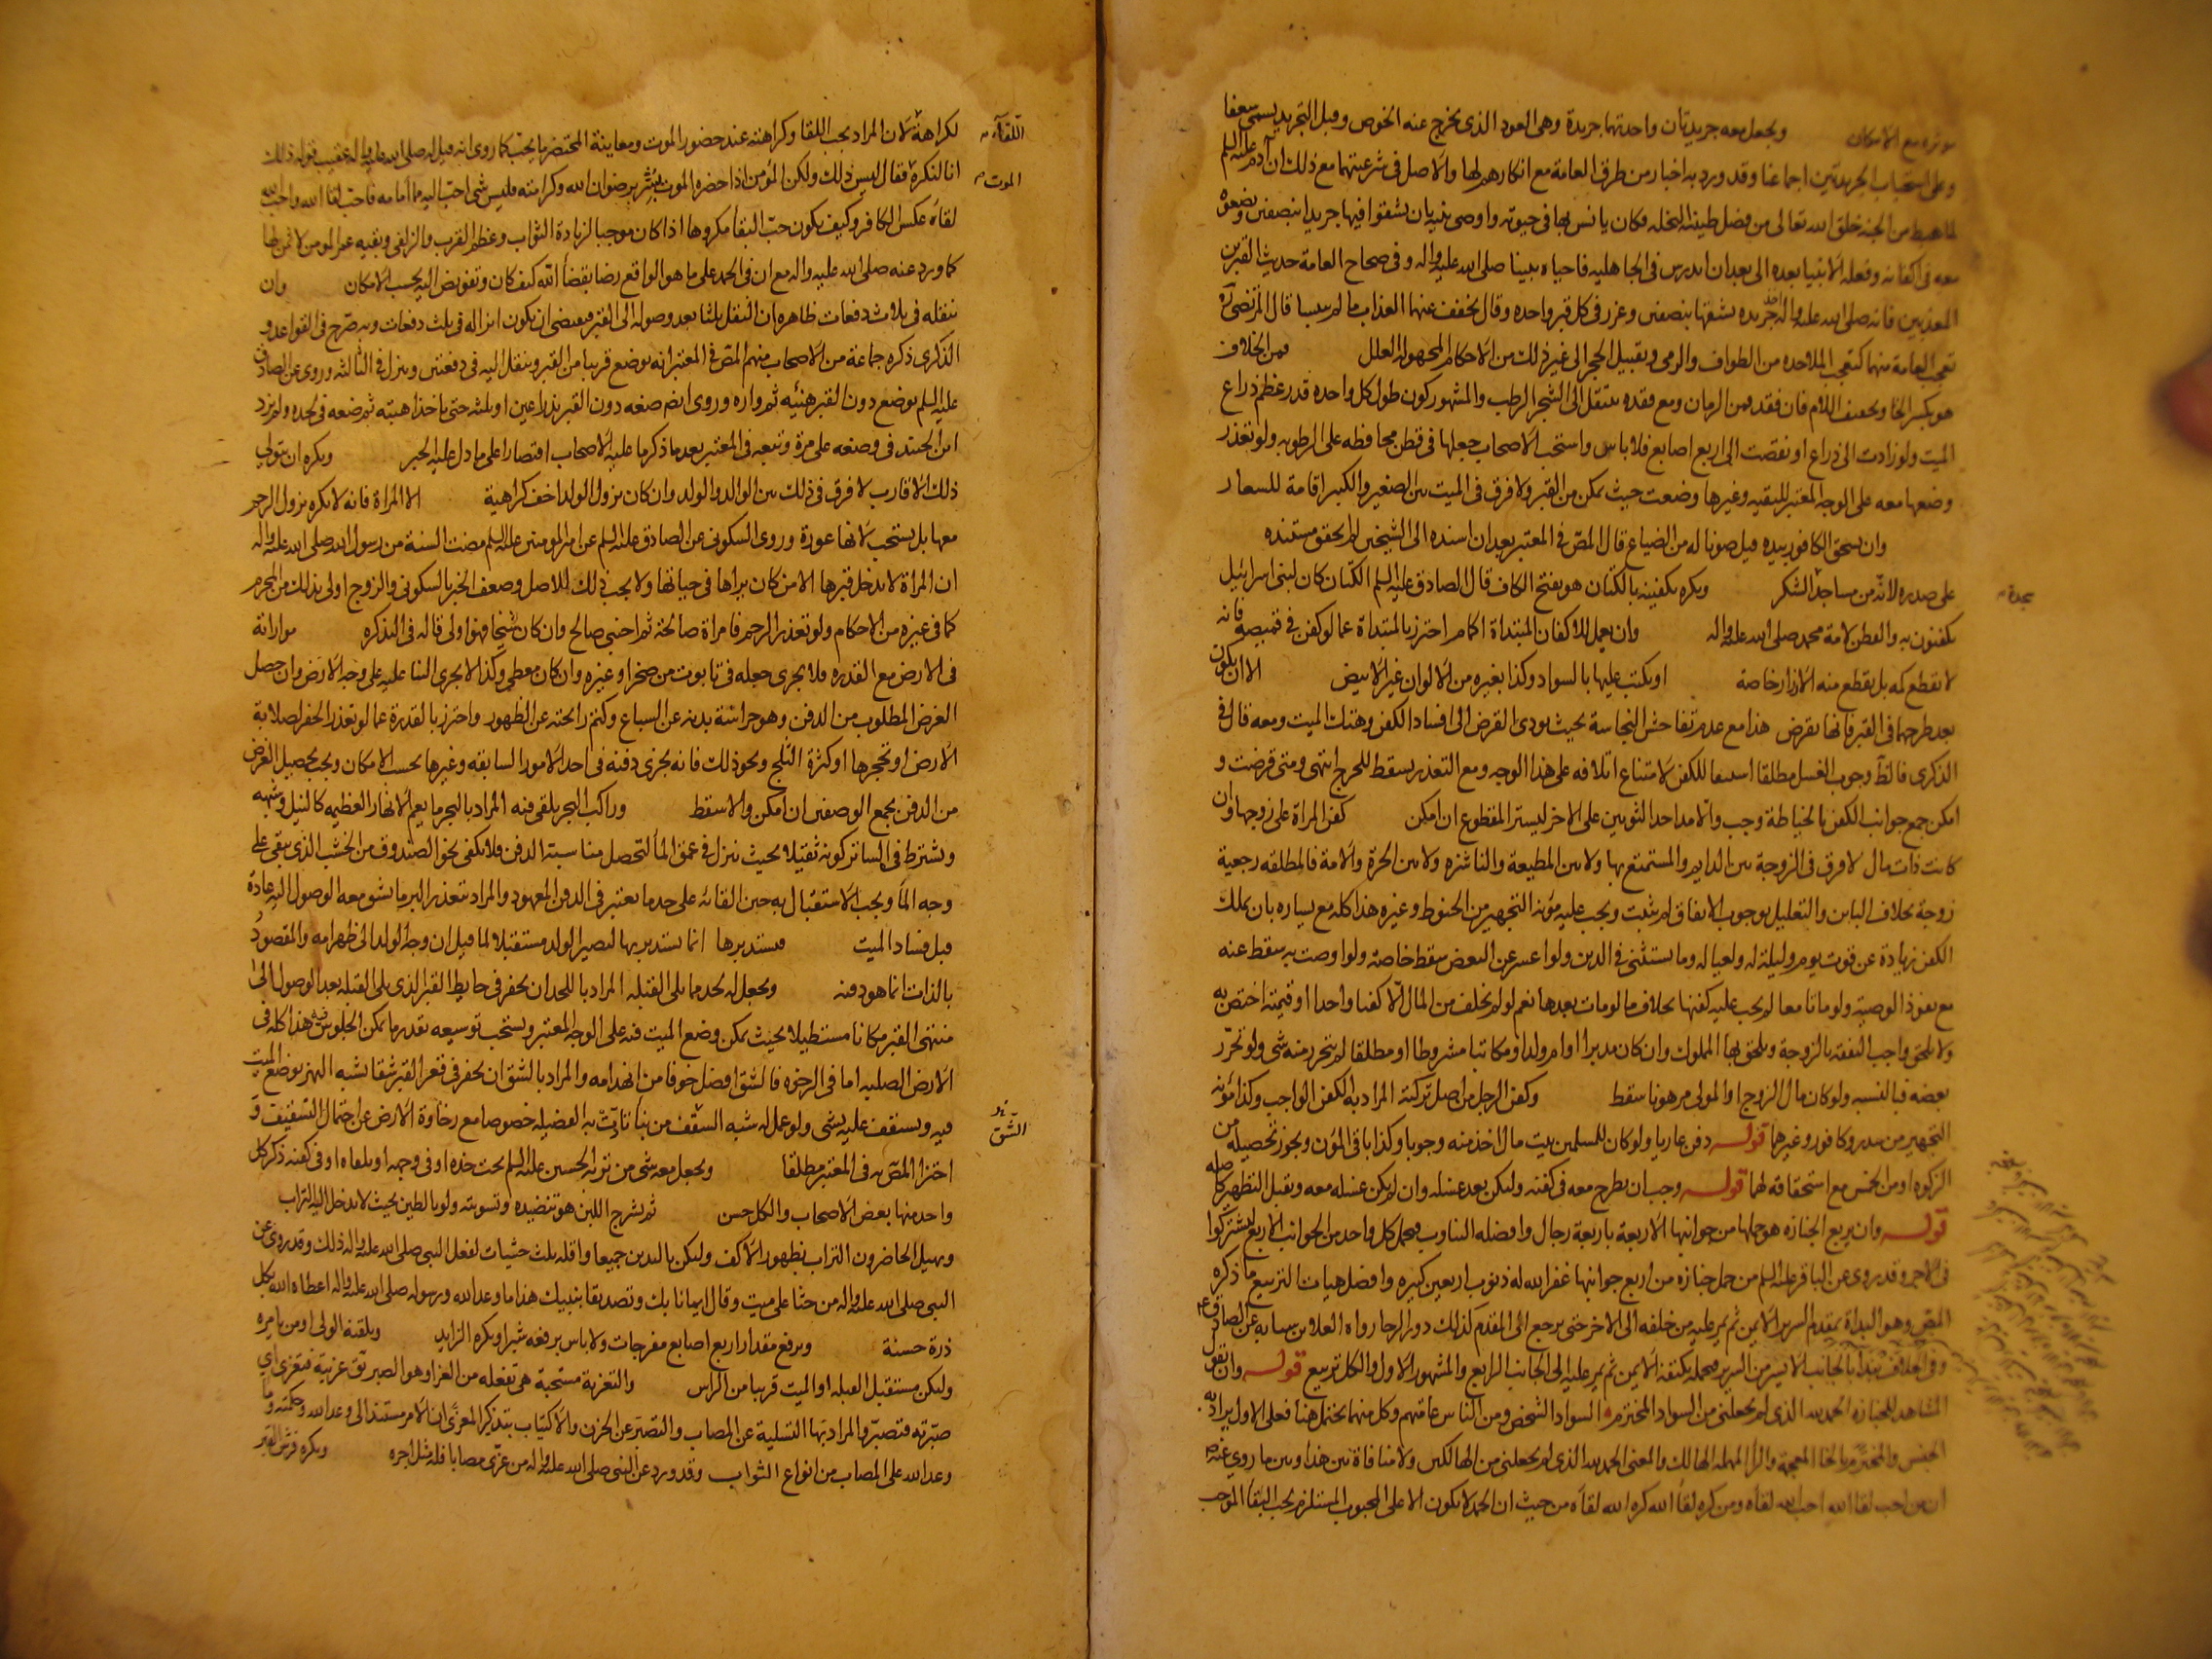 ويجعل معه جريدتان واحدتهما جريدة وهى العود الذى يخرج عنه الخوص وقبل التجريد يسمى سعفا
وعلى استحباب الجريدتين اجماعنا وقد ورد به اخبار من طرق العامة مع انكارهم لها والاصل فى شرعيتهما مع ذلك ان آدم عليه السلم
لما هبط من الجنة خلق الله تعالى من فضل طينته النخله فكان يانس بها فى حيوته واوصى بنيه ان يشقوا فيها جريدا بنصفين ويضعوه
معه فى اكفانه وفعله الانبيا بعده الى بعد ان اندرس فى الجاهليه فاحياه نبينا صلى الله عليه واله وفى صحاح العامة حديث القبرين
المعذبين فانه صلى الله عليه واله اخذ جريده بشقها بنصفين وغرز فى كل قبر واحده وقال يخفف عنهما العذاب ما لم ييبسا قال المرتضى
تعجب العامة منهما كتعجب الملاحده من الطواف والرمى وتقبيل الحجر الى غير ذلك من الاحكام المجهولة العلل فمن الخلاف
هو بكسر الخا وتخفيف اللام فان فقد فمن الرمان ومع فقده ينتقل الى الشجر الرطب والمشهور كون طول كل واحده قدر عظم ذراع
الميت ولو زادت الى ذراع او نقصت الى اربع اصابع فلا باس واستحب الاصحاب جعلها فى قطن محافظه على الرطوبه ولو تعذر
وضعها معه على الوجه المعتبر للتقيه وغيرها وضعت حيث يمكن من القبر ولا فرق فى الميت بين الصغير والكبير اقامة للشعار
وان يسحق الكافور بيده قيل صونا له من الضياع قال المص فى المعتبر بعد ان اسنده الى الشيخين لم اتحقق مستنده
على صدره لانه من مساجد الشكر ويكره تكفينه بالكتان هو بفتح الكاف قال الصادق عليه السلم الكتان كان لبنى اسرائيل
سجدة
يكفنون به والقطن لامة محمد صلى الله عليه واله وان يعمل للاكفان المبتداة اكمام احترز بالمبتداة عما لو كفن فى قميصه فانه
لا تقطع كمه بل يقطع منه الازرار خاصة او يكتب عليها بالسواد وكذا بغيره من الالوان غير الابيض الا ان يكون
بعد طرحها فى القبر فانها تقرض هذا مع عدم تفاحش النجاسة بحيث يودى القرض الى افساد الكفن وهتك الميت ومعه قال فى
الذكرى فالظ وجوب الغسل مطلقا استبقا للكفن لامتناع اتلافه على هذا الوجه ومع التعذر يسقط للحرج انتهى ومتى قرضت و
امكن جمع جوانب الكفن بالخياطة وجب والا مد احد الثوبين على الاخر ليستر المقطوع ان امكن كفن المراة على زوجها وان
كانت ذات مال لا فرق فى الزوجة بين الدايم والمستمتع بها ولا بين المطيعة والناشزه ولا بين الحرة والامة فالمطلقه رجعية
زوجة بخلاف الباين والتعليل بوجوب الانفاق لم يثبت ويجب عليه مؤنة التجهيز من الحنوط وغيره هذا كله مع يساره بان يملك
الكفن زيادة عن قوت يوم وليلة له ولعياله وما يستثنى فى الدين ولو اعسر عن البعض سقط خاصة ولو اوصت به سقط عنه
مع نفوذ الوصية ولو ماتا معا لم يجب عليه كفنها بخلاف ما لو مات بعدها نعم لو لم يخلف من المال الا كفنا واحدا او قيمته اختص به
ولا يلحق واجب النفقة بالزوجة ويلحق بها المملوك وان كان مدبرا او ام ولد او مكاتبا مشروطا او مطلقا لم يتحرر منه شى ولو تحرر
بعضه فبالنسبه ولو كان مال الزوج او المولى مرهونا سقط وكفن الرجل من اصل تركته المراد به الكفن الواجب وكذا مؤنة
التجهيز من سدر وكافور وغيرهما قوله دفن عاريا ولو كان للمسلمين بيت مال اخذ منه وجوبا وكذا باقى المؤن ويجوز تحصيله من
الزكوة او من الخمس مع استحقاقه لهما قوله وجب ان يطرح معه فى كفنه وليكن بعد غسله وان لم يكن غسله معه وتقبل التطهير
قوله وان يربع الجنازه هو حملها من جوانبها الاربعة باربعة رجال وافضله التناوب فيحمل كل واحد من الجوانب الاربع ليشتركوا
فى الاجر وقد روى عن الباقر عليه السلم من حمل جنازه من اربع جوانبها غفر الله له ذنوب اربعين كبيره وافضل هيات التربيع ما ذكره
المص وهو البداة بمقدم السرير الايمن ثم يمر عليه من خلفه الى الاخر حتى يرجع الى المقدم كذلك دور الرحا رواه العلا بن سيابه عن الصادق ع
وفى الخلاف يبدا بالجانب الايسر من السرير فيحمله بكتفه الايمن ثم يمر عليه الى الجانب الرابع والمشهور الاول والكل تربيع قوله وان يقول
المشاهد للجنازه الحمد لله الذى لم يجعلنى من السواد المخترم السواد الشخص ومن الناس عامتهم وكل منهما يحتمل هنا فعلى الاول يراد به
الجنس والمخترم بالخا المعجمة والرا المهملة الهالك والمعنى الحمد لله الذى لم يجعلنى من الهالكين ولا منافاة بين هذا وبين ما روى عنه
ان من احب لقا الله احب الله لقاه ومن كره لقا الله كره الله لقاه من حيث ان الحمد لا يكون الا على المحبوب المستلزم لحب البقا الموجب
لكراهة لان المراد بحب اللقا وكراهته عند حضور الموت ومعاينة المحتضر ما يحب كما روى انه قيل له صلى الله عليه واله عقيب قوله ذلك
اللقآء
انا لنكره الموت فقال ليس ذلك ولكن المؤمن اذا حضره الموت يبشر برضوان الله وكرامته فليس شى احب اليه مما امامه فاحب لقا الله واحب الله
لقاه عكس الكافر وكيف يكون حب البقا مكروها اذا كان موجبا لزيادة الثواب وعظم القرب والزلفى وبقيه عمر المومن لا ثمن لها
كما ورد عنه صلى الله عليه واله مع ان فى الحمد على ما هو الواقع رضا بقضا الله كيف كان وتفويض اليه بحسب الامكان وان
ينقله فى ثلاث دفعات ظاهره ان النقل ثلثا بعد وصوله الى القبر فيقتضى ان يكون انزاله فى ثلث دفعات وبه صرح فى القواعد و
الذكرى ذكره جماعة من الاصحاب منهم المص فى المعتبر انه يوضع قريبا من القبر وينقل اليه فى دفعتين وينزل فى الثالثه وروى عن الصادق
عليه السلم يوضع دون القبر هنيئه ثم واره وروى ايضا ضعه دون القبر بذراعين او ثلثه حتى ياخذ اهبته ثم ضعه فى لحده ولم يزد
ابن الجنيد فى وضعه على مرة وتبعه فى المعتبر بعد ما ذكر ما عليه الاصحاب اقتصارا على ما دل عليه الخبر ويكره ان يتولى
ذلك الاقارب لا فرق فى ذلك بين الوالد والولد وان كان نزول الولد اخف كراهية الا المراة فانه لا يكره نزول الرحم
معها بل يستحب لانها عورة وروى السكونى عن الصادق عليه السلم عن امير المومنين عليه السلم مضت السنة من رسول الله صلى الله عليه واله
ان المراة لا يدخل قبرها الا من كان يراها فى حياتها ولا يجب ذلك للاصل وضعف الخبر بالسكونى والزوج اولى بذلك من المحرم
كما فى غيره من الاحكام ولو تعذر الرحم فامراة صالحة ثم اجنبى صالح وان كان شيخا فهو اولى قاله فى التذكره مواراته
فى الارض مع القدره فلا يجزى جعله فى تابوت من صخر او غيره وان كان مغطى وكذا لا يجزى البنا عليه على وجه الارض وان حصل
الغرض المطلوب من الدفن وهو حراسة بدنه عن السباع وكتم رائحته عن الظهور واحترز بالقدرة عما لو تعذر الحفر لصلابة
الارض او تحجرها او كثرة الثلج ونحو ذلك فانه يجزى دفنه فى احد الامور السابقه وغيرها بحسب الامكان ويجب تحصيل الغرض
من الدفن بجمع الوصفين ان امكن والا سقط وراكب البحر يلقى فيه المراد بالبحر ما يعم الانهار العظيمه كالنيل وشبهه
ويشترط فى الساتر كونه ثقيلا بحيث ينزل فى عمق الما لتحصل مناسبة الدفن فلا يكفى نحو الصندوق من الخشب الذى يبقى على
وجه الما ويجب الاستقبال به حين القائه على حد ما يعتبر فى الدفن المعهود والمراد بتعذر البر ما يشق معه الوصول اليه عادة
قبل فساد الميت مستدبرها انما يستدبر بها ليصير الولد مستقبلا لما قيل ان وجه الولد الى ظهر امه والمقصود
بالذات انما هو دفنه ويجعل له لحد مما يلى القبله المراد باللحد ان يحفر فى حايط القبر الذى يلى القبله بعد الوصول الى
منتهى القبر مكانا مستطيلا بحيث يمكن وضع الميت فيه على الوجه المعتبر ويستحب توسيعه بقدر ما يمكن الجلوس فيه هذا كله فى
الارض الصلبه اما فى الرخوه فالشق افضل خوفا من انهدامه والمراد بالشق ان يحفر فى قعر القبر شقا يشبه النهر يوضع الميت
فيه ويسقف عليه بشى ولو عمل له شبه السقف من بنا تادت به الفضيله خصوصا مع رخاوة الارض عن احتمال التسقيف و
الشق
اجتزا المص به فى المعتبر مطلقا ويجعل معه شى من تربة الحسين عليه السلم تحت خده او فى وجهه او تلقاه او فى كفنه ذكر كل
واحد منها بعض الاصحاب والكل حسن ثم يشرج اللبن هو تنضيده وتسويته ولو بالطين بحيث لا يدخل اليه التراب
ويهيل الحاضرون التراب بظهور الاكف وليكن باليدين جميعا واقله ثلث حثيات لفعل النبى صلى الله عليه واله ذلك وقد روى عن
النبى صلى الله عليه واله من حثا على ميت وقال ايمانا بك وتصديقا بنبيك هذا ما وعد الله ورسوله صلى الله عليه واله اعطاه الله بكل
ذرة حسنة ويرفع مقدار اربع اصابع مفرجات ولا باس برفعه شبرا ويكره الزايد ويلقنه الولى او من يامره
وليكن مستقبل القبله او الميت قريبا من الراس والتعزية مستحبة هى تفعله من العزا وهو الصبر يق عزيته فتعزى اى
صبرته فتصبر والمراد بها التسلية عن المصاب والتصبر عن الحزن والاكتياب بتذكير المعزى ان الامر مستند الى وعد الله وحكمته وما
وعد الله على المصاب من انواع الثواب وقد ورد عن النبى صلى الله عليه واله من عزى مصابا فله مثل اجره ويكره فرش القبر